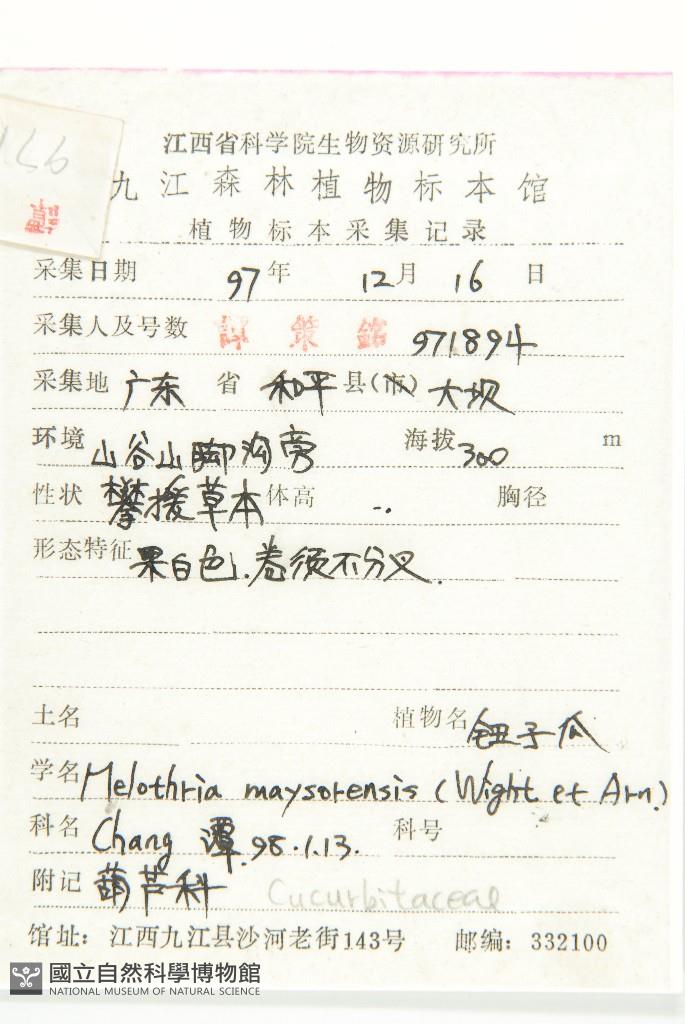 江西省科学院生物资源研究所
九江森林植物标本馆
植物标本采集记录
采集日期 97年 12月 16日
采集人及号数 譚策銘 971894
采集地 广东省 和平县(市) 大坝
环境 山谷山脚沟旁 海拔 300 m
性状 攀援草本 体高 .. 胸径
形态特征 果白色.卷须不分叉.
土名 植物名 钮子瓜
学名 Melothria maysorensis (Wight et Arn.)
科名 Chang 潭.98.1.13. 科号
附记 葫芦科 Cucurbitaceae
馆址：江西九江县沙河老街143号 邮编：332100
國立自然科學博物館
NATIONAL MUSEUM OF NATURAL SCIENCE